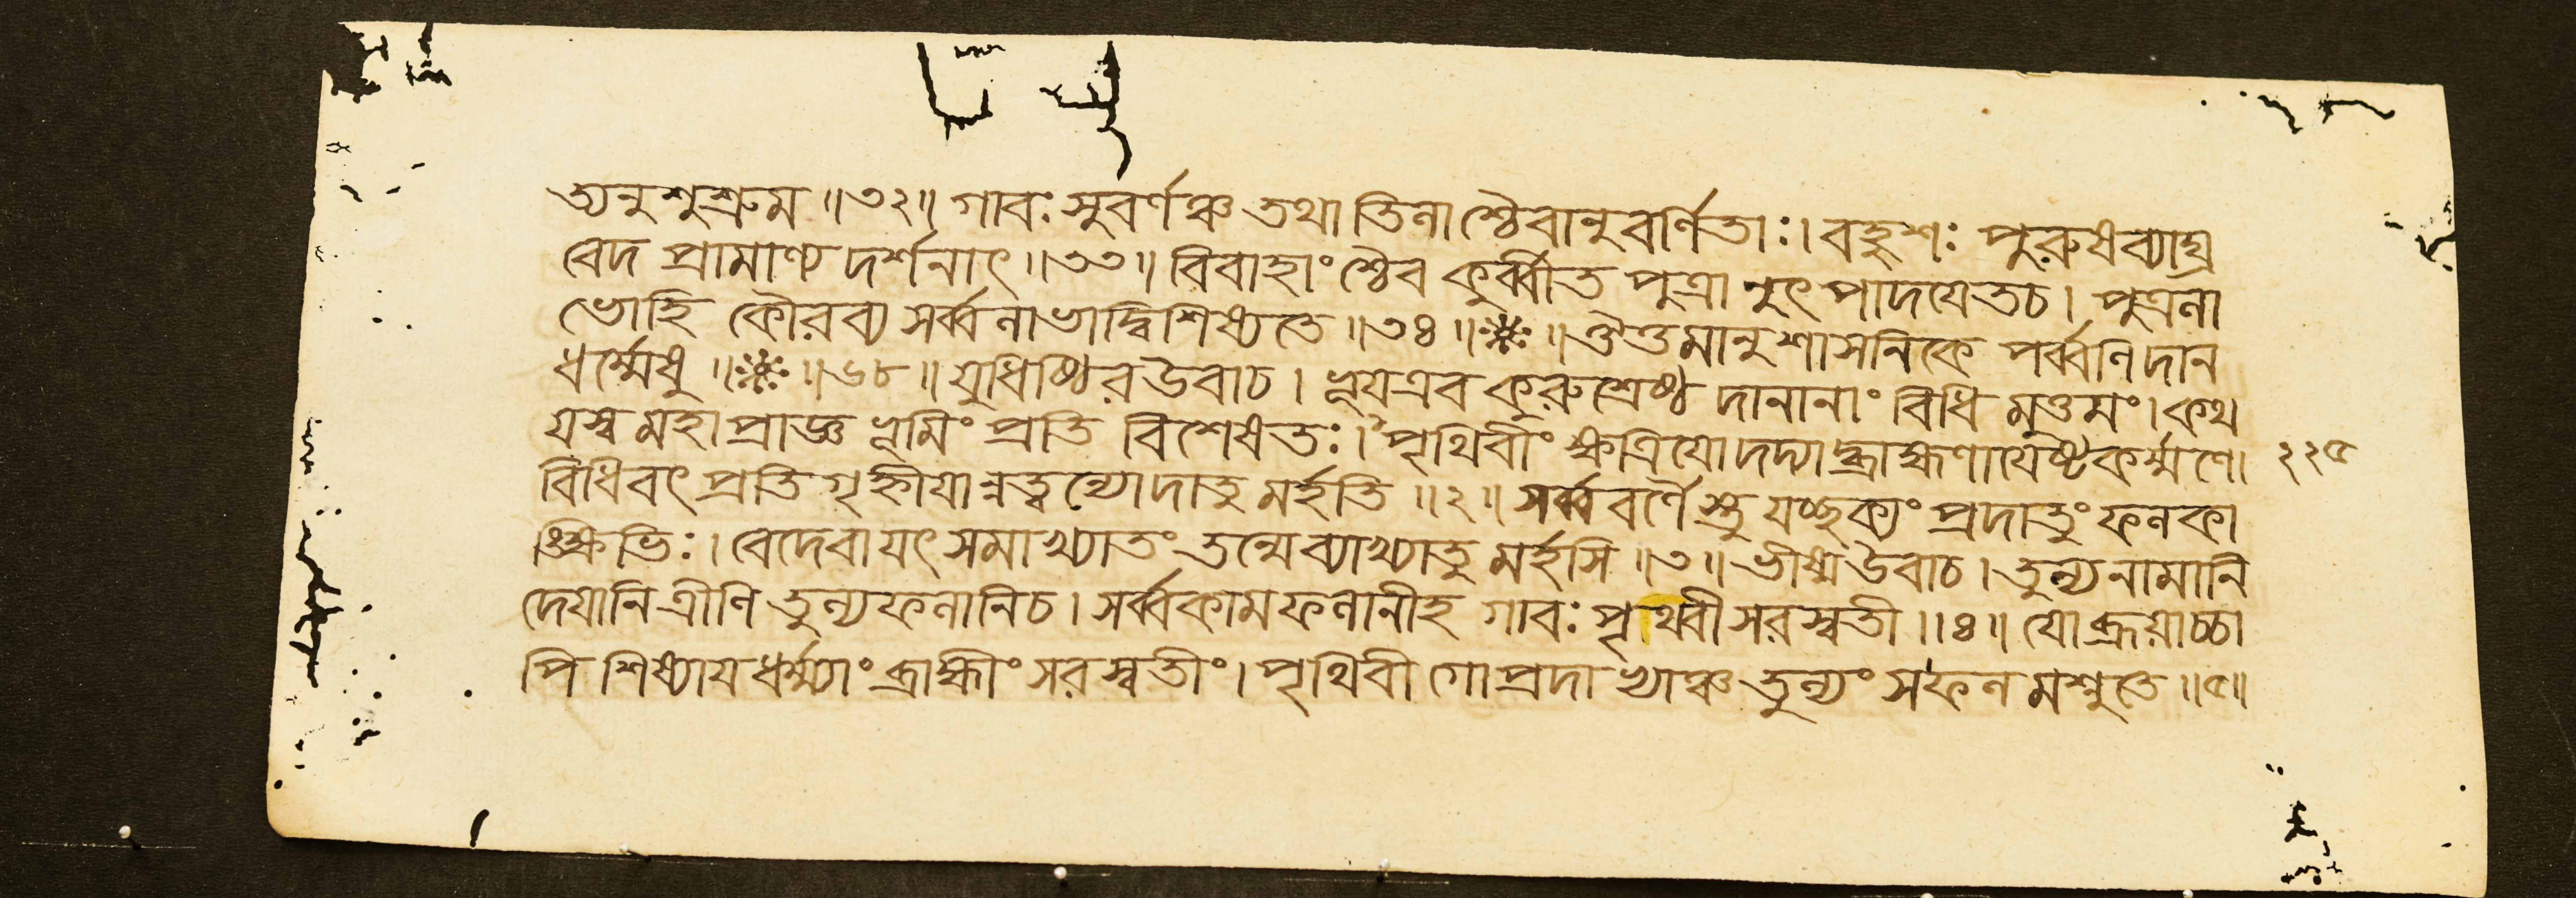 ত্যনুশুশ্রুম ॥৩২॥ গাবঃ সুবর্ণঞ্চ তথা তিলাশ্চৈবানুবর্ণিতাঃ। বহুশঃ পুরুষব্যাঘ্র
বেদ প্রামাণ্য দর্শনাৎ ॥৩৩॥ বিবাহাংশ্চৈব কুর্ব্বীত পুত্রানুৎপাদয়েতচ। পুত্রলা
ভোহি কৌরব্য সর্ব্বলাভাদ্বিশিষ্যতে ॥৩৪॥ ॥ ঔত্তমানুশাসনিকে পর্ব্বণিদান
ধর্ম্মেষু ॥ ॥৬৮॥ যুধিষ্ঠিরউবাচ। ভূয়এব কুরুশ্রেষ্ঠ দানানাং বিধি মুত্তমং। কথ
য়স্ব মহাপ্রাজ্ঞ ভূমিং প্রতি বিশেষতঃ। পৃথিবীং ক্ষত্রিয়োদদ্যাদ্ব্রাহ্মণায়েষ্টকর্ম্মণে।
২২৫
বিধিবৎ প্রতিগৃহ্ণীয়ান্নত্বন্যোদাতুমর্হতি ॥২॥ সর্ব্ববর্ণৈস্তু যচ্ছক্যং প্রদাতুং ফলকা
ঙ্ক্ষিভিঃ। বেদেবা যৎ সমাখ্যাতং তন্মেব্যাখ্যাতুমর্হসি ॥৩॥ ভীষ্মউবাচ। তুল্যনামানি
দেয়ানি ত্রীণি তুল্যফলানিচ। সর্ব্বকামফলানীহ গাবঃ পৃথ্বী সরস্বতী ॥৪॥ যোব্রূয়াচ্চা
পি শিষ্যায় ধর্ম্ম্যাং ব্রাহ্মীং সরস্বতীং। পৃথিবী গোপ্রদাভ্যাঞ্চ তুল্যং সফলমশ্নুতে ॥৫॥